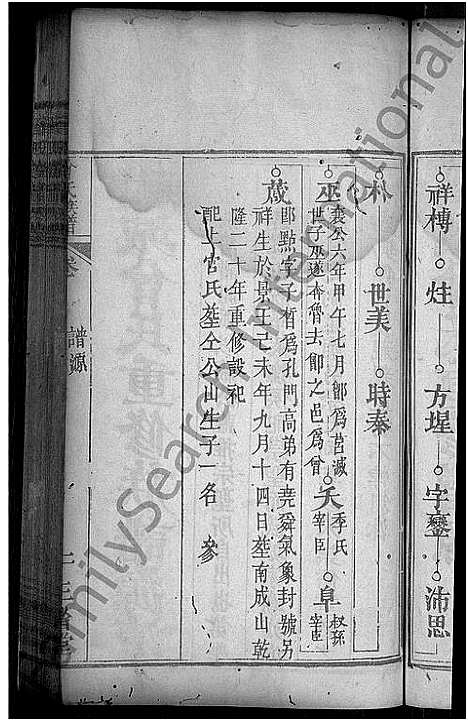 祥樽 炷 方堤 字 沛思
朴 世美 時泰
巫 襄公六年甲午七月鄫爲莒滅 世子巫遂奔魯去鄫之邑爲曾 夭 季氏宰臣 阜 叔孫宰臣
蒧 卽點字子晳爲孔門高弟有堯舜氣象封號另
祥生於景王己未年九月十四日塟南成山乾
隆二十年重修設祀
配上官氏塟仝公山生子一名 參
譜源
FamilySearch International